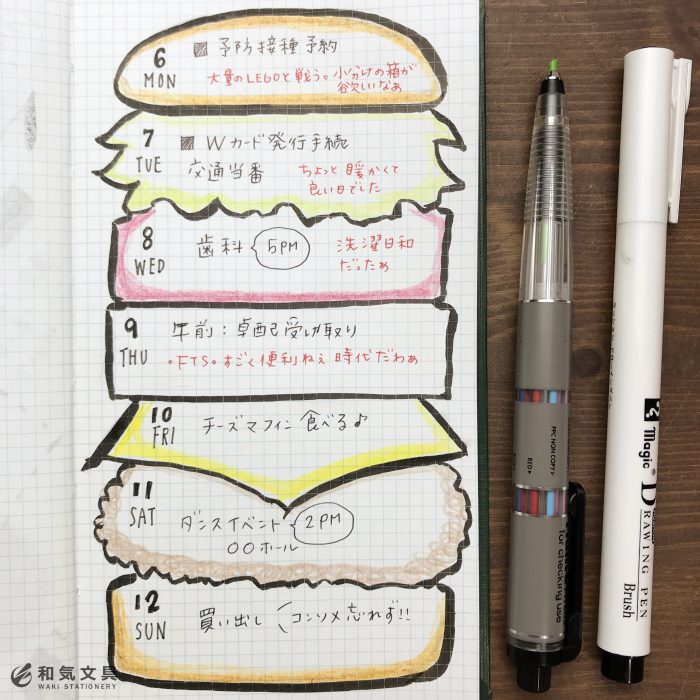 6
MON
予防接種予約
大量のLEGOと戦う。小分けの箱が
欲しいなぁ
7
TUE
Wカード発行手続
交通当番
ちょっと暖かくて
良い日でした
8
WED
歯科
5PM
洗濯日和
だったぁ
9
THU
午前:卓配受け取り
FTS。すごく便利ねぇ時代だわぁ
10
FRI
チーズマフィン食べる♪
11
SAT
ダンスイベント
2PM
〇〇ホール
12
SUN
買い出し
コンソメ忘れず!!
和気文具
WAKI STATIONERY
PPC NON COPY
RED
for checking use
Magic
DRAWING PEN
Brush